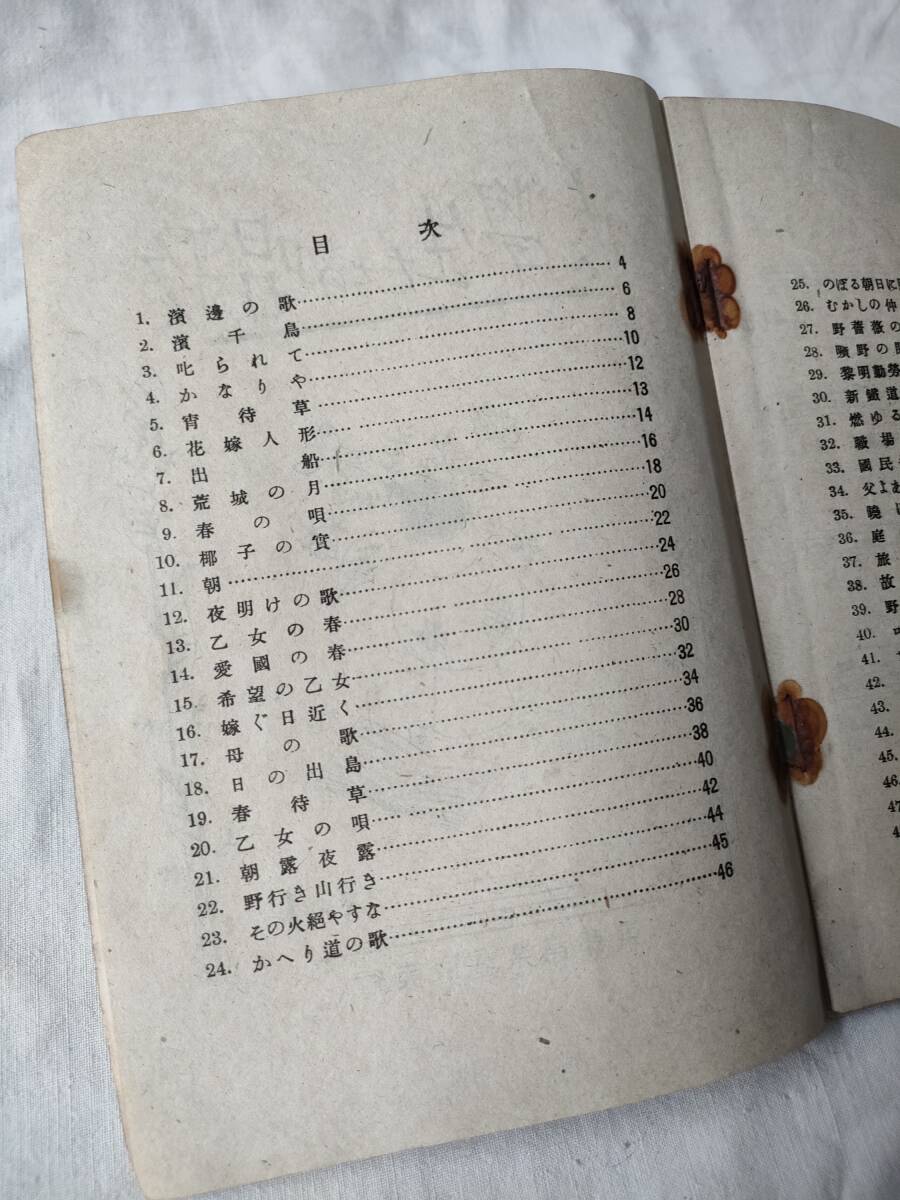 目次
1. 濱邊の歌……4
2. 濱千鳥……6
3. 叱られて……8
4. かなりや……10
5. 宵待草……12
6. 花嫁人形……13
7. 出船……14
8. 荒城の月……16
9. 春の唄……18
10. 椰子の實……20
11. 朝……22
12. 夜明けの歌……24
13. 乙女の春……26
14. 愛國の春……28
15. 希望の乙女……30
16. 嫁ぐ日近く……32
17. 母の歌……34
18. 日の出島……36
19. 春待草……38
20. 乙女の唄……40
21. 朝露夜露……42
22. 野行き山行き……44
23. その火絕やすな……45
24. かへり道の歌……46
25. のぼる朝日に
26. むかしの仲
27. 野薔薇の
28. 曠野の
29. 黎明勤勞
30. 新鐵道
31. 燃ゆる
32. 職場
33. 國民
34. 父よあ
35. 曉に
36. 庭
37. 旅
38. 故
39. 野
40.
41.
42.
43.
44.
45.
46.
47
4